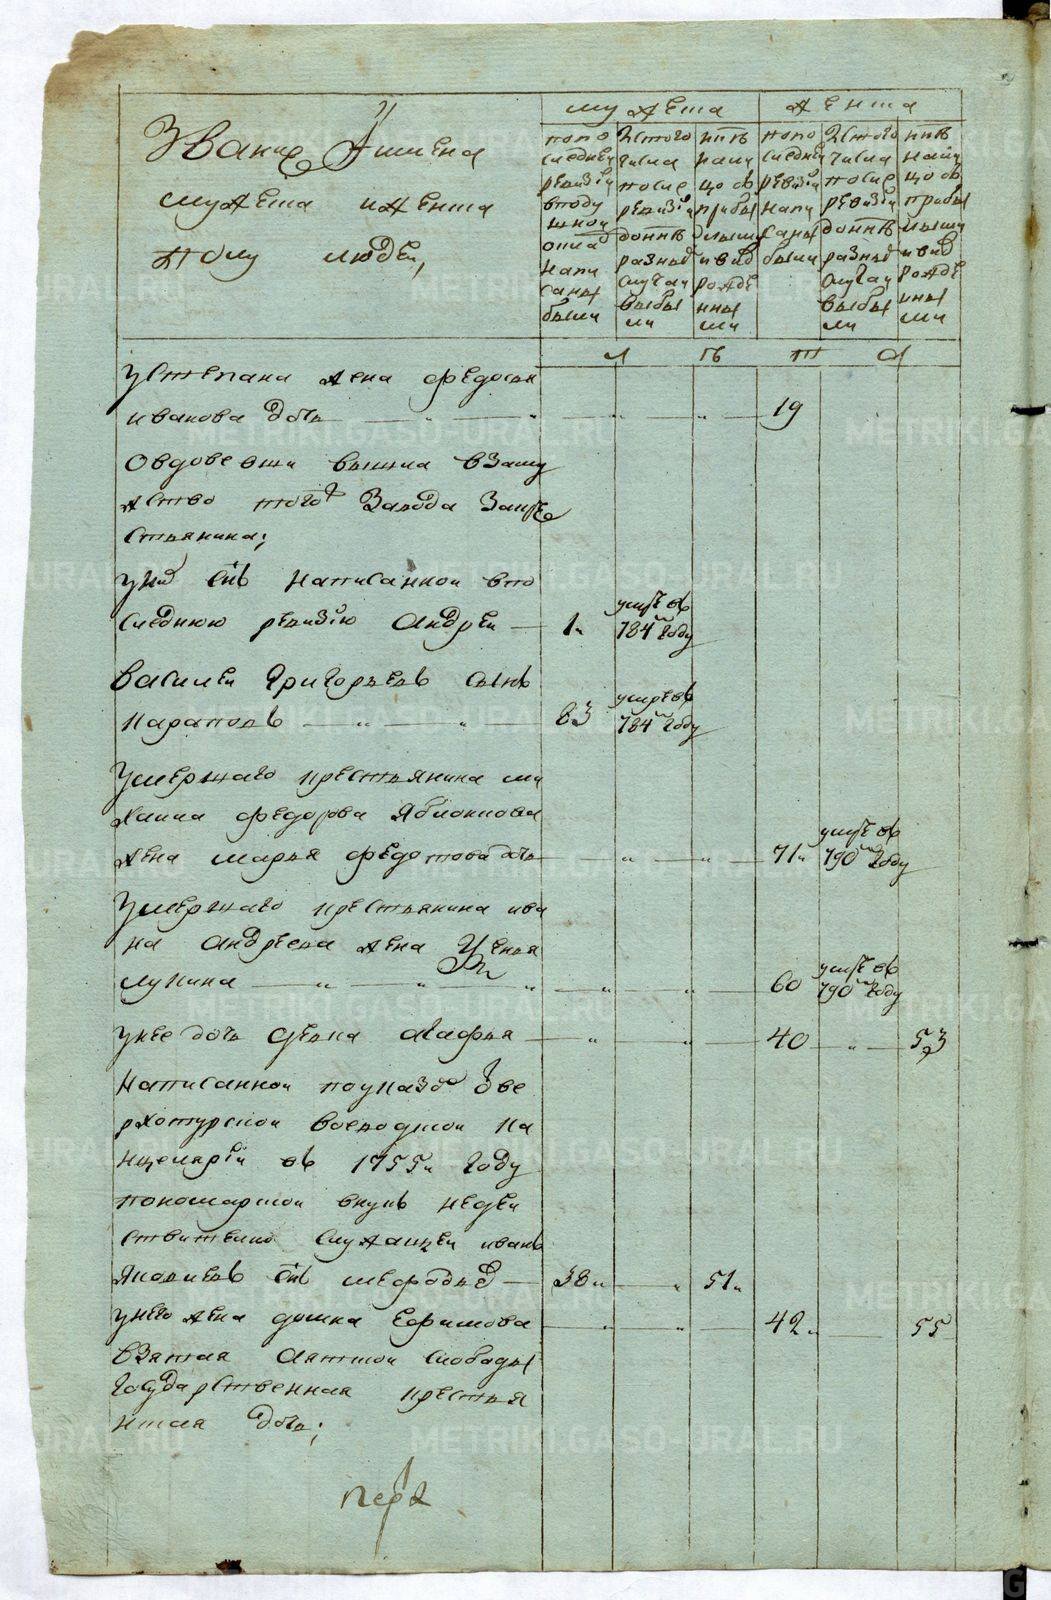 Звание Ї имена
мужеска и женска
полу людей,
мужеска
женска
попо
следней
ревизїи
вподу
шной
оклад
напи
саны
были
Ис того
числа
после
ревизїи
до ннѣ
разныї
случаи
выбы
ли
ннѣ
нали
цо съ
прибы
лыми
и вно
рожде
нны
ми
попо
следней
ревизїи
напи
саны
были
Ис того
числа
после
ревизїи
до ннѣ
разныї
случаи
выбы
ли
ннѣ
нали
цо съ
прибы
лыми
и вно
рожде
нны
ми
л ѣ т а
У степана жена федосья
иванова дочь 19
Овдовевши вышла взаму
жство того Завода За кре
стьянина;
у ней снъ написанной впо
следнюю ревизїю Андрей 1 умре въ
784м году
Василей Григорьевъ сынъ
Караповъ 63 умре въ
784м году
Умершаго крестьянина ми
хаила федорова Яблокова
жена марья федотова дочь 71 умре въ
790м году
Умершаго крестьянина ива
на андреева жена Уленья
лукина 60 умре въ
790м году
у нее дочь девка агафья 40 53
Написанной по указу Ї ве
рхотурской воеводской ка
нцелярїи въ 1755м году
пономарской внукъ недей
ствително служащей иванъ
Яковлевъ снъ мефодьев 38 51
у него жена домна Ефимова 42 55
взятая Аятской слободы
государственная крестья
нская дочь;
пере